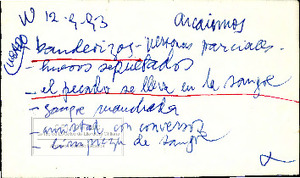 W 12-9-93 arcaismos
(cuerpo)
- banderizos - personas parciales.
- huesos sepultados
- el pecado se lleva en la sangre
- sangre manchada
- amistad con conversos
- limpieza de sangre